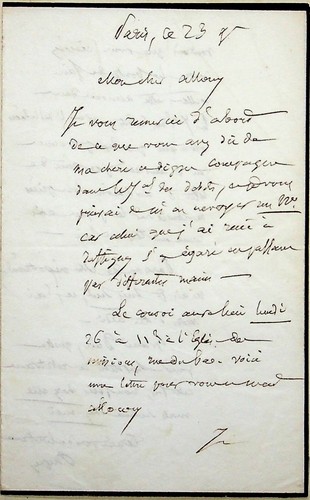 Paris, ce 23
Mon cher
Je vous remercie d'abord
de ce que vous avez dit de
ma chère et digne compagne
dans le Jal des Débats, et vous
prierai de m'en envoyer un No
car celui que j'ai reçu à
s'est égaré en passant
par différentes mains —
Le convoi aura lieu lundi
26 à 11h à l'Eglise des
missions, rue du bac. voici
une lettre pour vous et mad